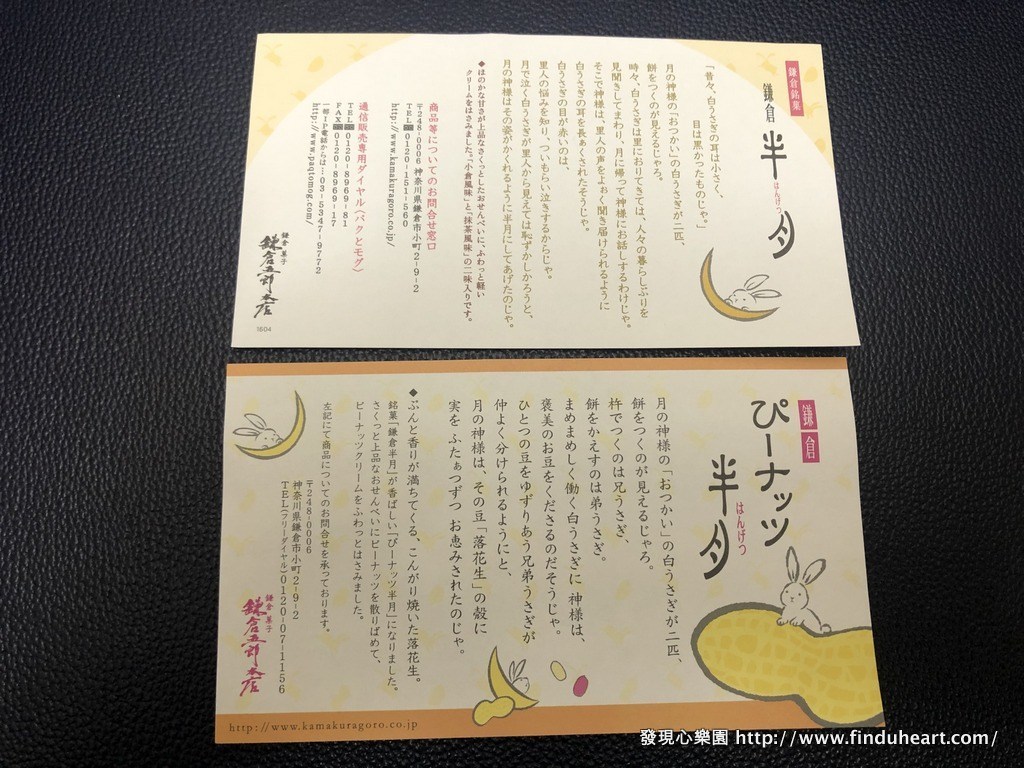 鎌倉銘菓
鎌倉
半月
はんげつ
「昔々、白うさぎの耳は小さく、
目は黒かったものじゃ。」
月の神様の「おつかい」の白うさぎが二匹、
餅をつくのが見えるじゃろ。
時々、白うさぎは里におりてきては、人々の暮らしぶりを
見聞きしてまわり、月に帰って神様にお話しするわけじゃ。
そこで神様は、里人の声をよぉく聞き届けられるように
白うさぎの耳を長ぁくされたそうじゃ。
白うさぎの目が赤いのは、
里人の悩みを知り、ついもらい泣きするからじゃ。
月で泣く白うさぎが里人から見えては恥ずかしかろうと、
月の神様はその姿がかくれるように半月にしてあげたのじゃ。
◆ほのかな甘さが上品なさくっとしたおせんべいに、ふわっと軽い
クリームをはさみました。「小倉風味」と「抹茶風味」の二味入りです。
商品等についてのお問合せ窓口
〒248-0006 神奈川県鎌倉市小町2-9-2
TEL 0120-151-560
http://www.kamakuragoro.co.jp/
通信販売専用ダイヤル(パクとモグ)
TEL 0120-8969-81
FAX 0120-8969-17
一部IP電話からは:03-5347-9772
http://www.paqtomog.com/
鎌倉菓子
鎌倉五郎本店
1604
鎌倉
ぴーナッツ
半月
はんげつ
月の神様の「おつかい」の白うさぎが二匹、
餅をつくのが見えるじゃろ。
杵でつくのは兄うさぎ、
餅をかえすのは弟うさぎ。
まめまめしく働く白うさぎに 神様は、
褒美のお豆をくださるのだそうじゃ。
ひとつの豆をゆずりあう兄弟うさぎが
仲よく分けられるようにと、
月の神様は、その豆「落花生」の殻に
実を ふたぁつずつ お恵みされたのじゃ。
◆ぷんと香りが満ちてくる、こんがり焼いた落花生。
銘菓「鎌倉半月」が香ばしい「ぴーナッツ半月」になりました。
さくっと上品なおせんべいにピーナッツを散りばめて、
ピーナッツクリームをふわっとはさみました。
左記にて商品についてのお問合せを承っております。
〒248-0006
神奈川県鎌倉市小町2-9-2
TEL(フリーダイヤル)0120-07-1156
鎌倉菓子
鎌倉五郎本店
http://www.kamakuragoro.co.jp
發現心樂園 http://www.finduheart.com/